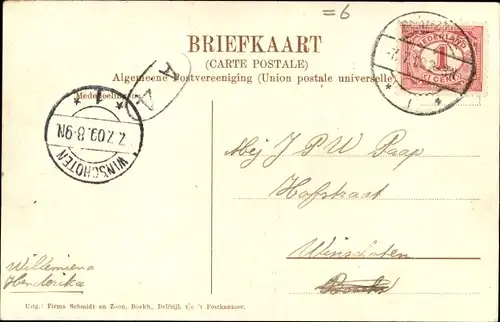 =6
BRIEFKAART
(CARTE POSTALE)
Algemeene Postvereeniging (Union postale universelle)
Mededeelingen
NEDERLAND
1
CENT
1
WINSCHOTEN
7.7.09.8-9N
1
Mej J P W Paap
Hofstraat
Winschoten
Willemiena
Henderika
Uitg.: Firma Schmidt en Zoon, Boekh., Delfzijl t/o 't Postkantoor.